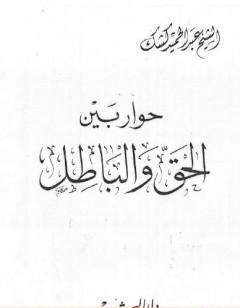 الشيخ عبد الحميد كشك
حوار بين
الحقّ والبَاطِل